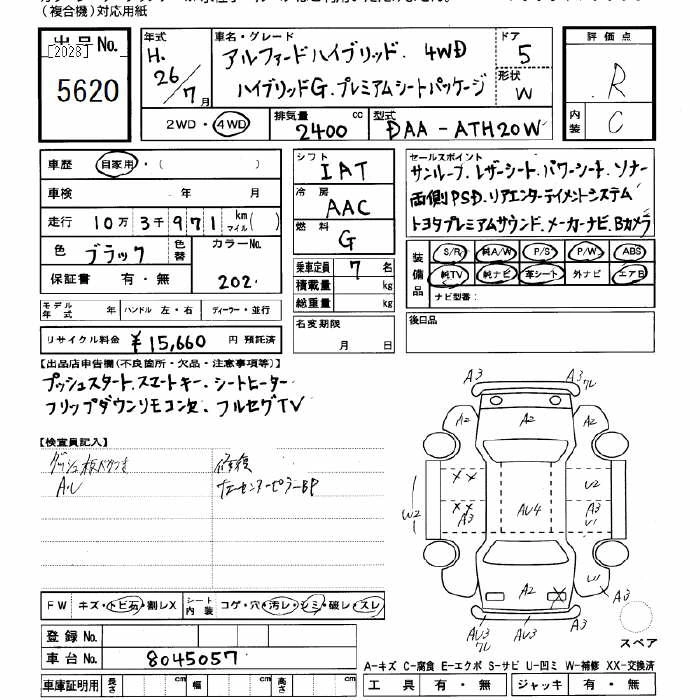 (複合機)対応用紙
出品No. [2028] 5620
年式 H. 26/7月
車名・グレード アルファードハイブリッド. 4WD
ハイブリッドG.プレミアムシートパッケージ
ドア 5
形状 W
評価点 R
内装 C
2WD・4WD
排気量 2400 cc
型式 DAA-ATH20W
車歴 自家用・( )
車検 年 月
走行 10万3千971 km マイル( )
色 ブラック 色替
カラーNo. 202.
保証書 有・無
シフト IAT
冷房 AAC
燃料 G
乗車定員 7 名
積載量 kg
総重量 kg
名変期限 月 日
セールスポイント
サンルーフ.レザーシート.パワーシート.ソナー
両側PSD.リアエンターテイメントシステム
トヨタプレミアムサウンド.メーカーナビ.Bカメラ
装備品 S/R 純A/W P/S P/W ABS
純TV 純ナビ 革シート 外ナビ エアB
ナビ型番:
後日品
モデル年式 年 ハンドル 左・右 ディーラー・並行
リサイクル料金 ¥15,660 円 預託済
【出品店申告欄(不良箇所・欠品・注意事項等)】
プッシュスタート.スマートキー.シートヒーター
フリップダウンリモコン欠.フルセグTV
【検査員記入】
修復
A3 A3
A2 A2 A2
W2 A3 AU4 U2 A3 U1
A2 U1 A3
AU3 AU3
FW キズ・トビ石・割レX
シート内装 コゲ・穴・汚レ・シミ・破レ・スレ
スペア
登録No.
車台No. 8045057
A-キズ C-腐食 E-エクボ S-サビ U-凹ミ W-補修 XX-交換済
車庫証明用 長さ cm 幅 cm 高さ cm
工具 有・無 ジャッキ 有・無